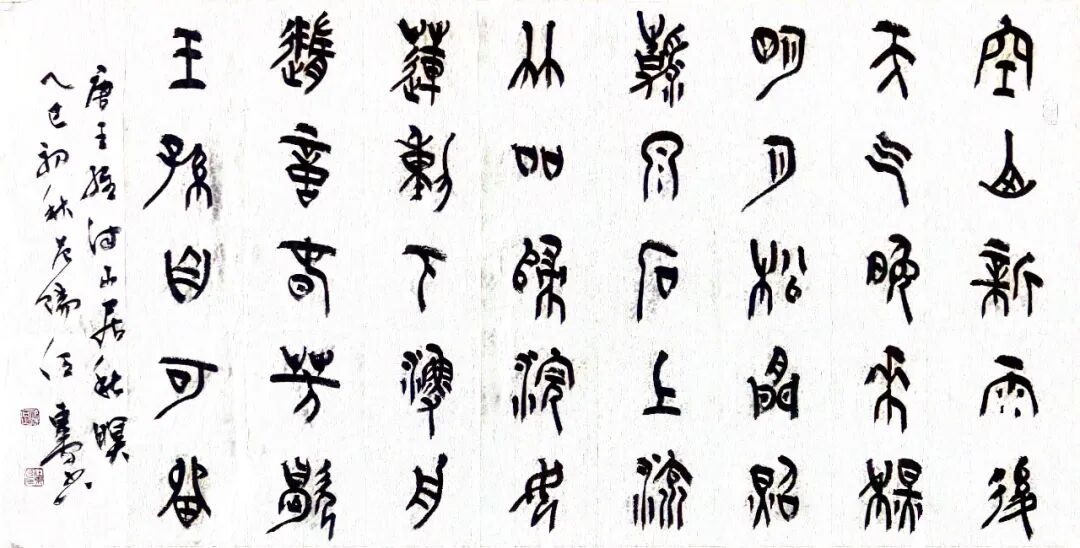 空山新雨後
天气晚來秋
明月松間照
清泉石上流
竹吅歸浣女
蓮動下漁舟
隨意春芳歇
王孫自可留
唐王維詩山居秋暝
乙巳初秋 任 書